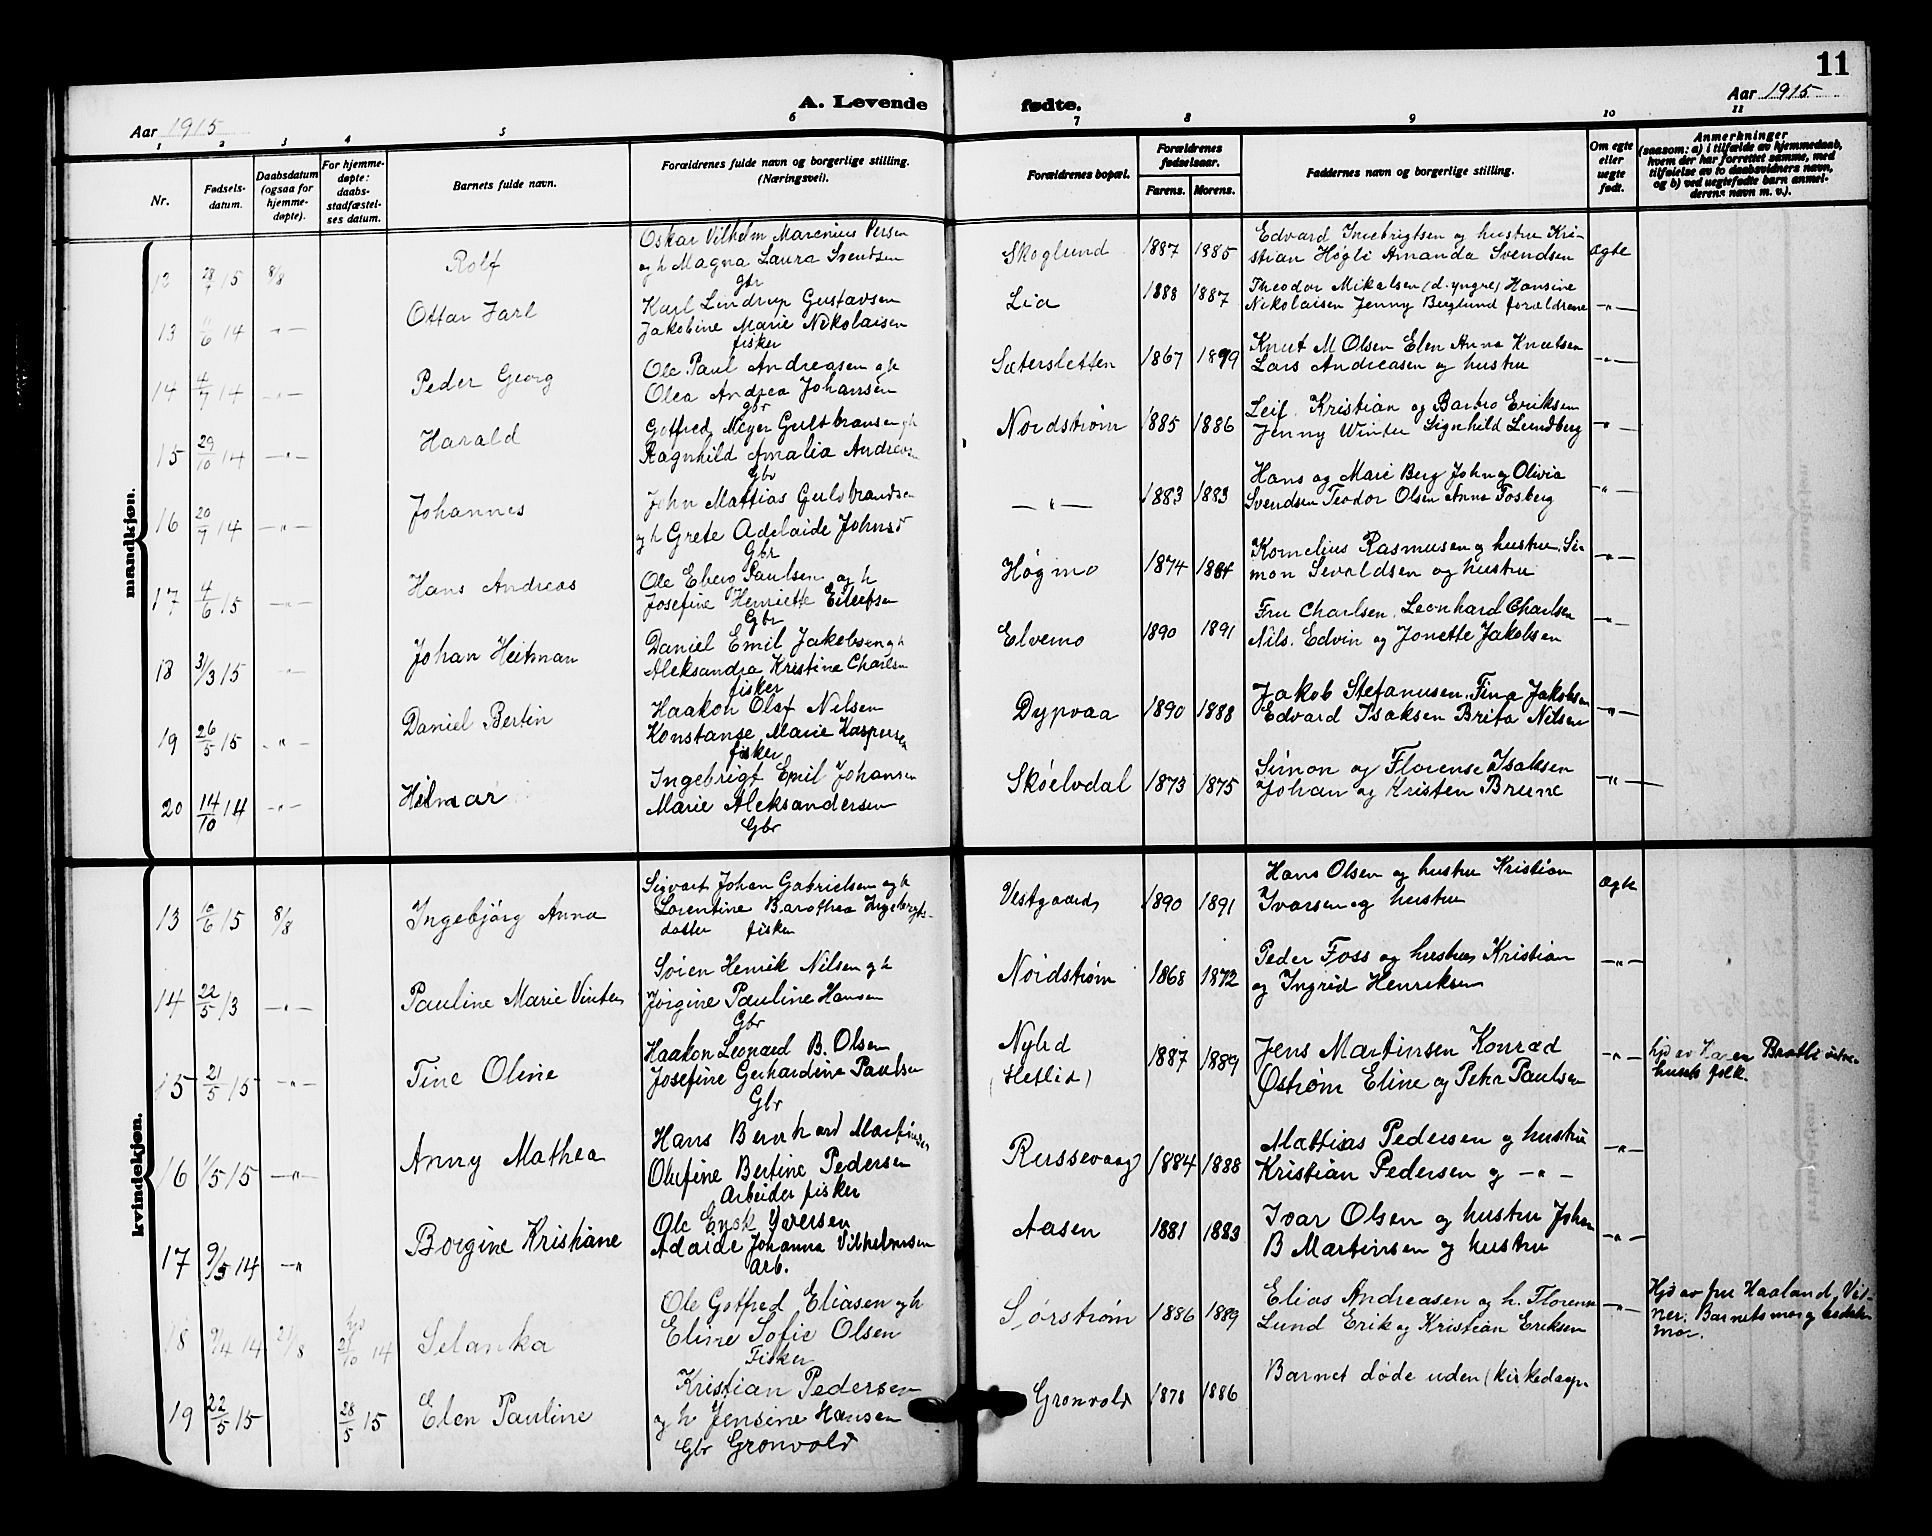 11
A. Levende fødte.
Aar 1915
Aar 1915
1 2 3 4 5 6 7 8 9 10 11
Nr.
Fødsels-
datum.
Daabsdatum
(ogsaa for
hjemme-
døpte).
For hjemme-
døpte:
daabs-
stadfæstel-
ses datum.
Barnets fulde navn.
Forældrenes fulde navn og borgerlige stilling.
(Næringsvei).
Forældrenes bopæl.
Forældrenes
fødselsaar.
Farens. Morens.
Faddernes navn og borgerlige stilling.
Om egte
eller
uegte
født.
Anmerkninger
(saasom: a) i tilfælde av hjemmedaab,
hvem der har forrettet samme, med
tilføielse av to daabsvidners navn,
og b) ved uegtefødte barn anmel-
derens navn m. v.).
mandkjøn.
12 28/7 15 8/8 Rolf
Oskar Vilhelm Marenius Persen
og h Magna Laura Svendsen
Gbr
Skoglund 1887 1885
Edvard Ingebrigtsen og hustru Kri-
stian Høgli Amanda Svendsen
ægte
13 11/6 14 -"- Ottar Jarl
Karl Lindrup Gustavsen
Jakobine Marie Nikolaisen
fisker
Lia 1888 1887
Theodor Mikalsen (d. yngre) Hansine
Nikolaisen Jenny Berglund forældrene
-"-
14 4/7 14 -"- Peder Georg
Ole Paul Andreasen og h
Olea Andrea Johansen
gbr
Sætersletten 1867 1879
Knut M Olsen Elen Anna Knutsen
Lars Andreasen og hustru
-"-
15 29/10 14 -"- Harald
Gotfred Meyer Gulbransen og h
Ragnhild Amalia Andreas
Gbr
Nordstrøm 1885 1886
Leif. Kristian og Barbro Eriksen
Jenny Winter Signhild Lundberg
-"-
16 20/7 14 -"- Johannes
John Mattias Gulbrandsen
og h Grete Adelaide Johnsd
Gbr
-"- 1883 1883
Hans og Marie Berg John og Olivia
Svendsen Teodor Olsen Anna Fosberg
-"-
17 4/6 15 -"- Hans Andreas
Ole Ebero Paulsen og h
Josefine Henriette Eilertsen
Gbr
Høgmo 1874 1884
Kornelius Rasmusen og hustru. Si-
mon Sevaldsen og hustru
-"-
18 31/3 15 -"- Johan Heitman
Daniel Emil Jakobsen og h
Aleksandra Kristine Charlsn
fisker
Elvemo 1890 1891
Fru Charlsen. Leonhard Charlsen
Nils. Edvin og Jonette Jakobsen
-"-
19 26/5 15 -"- Daniel Bertin
Haakon Olaf Nilsen
Konstanse Marie Kaspersen
fisker
Dypvaa 1890 1888
Jakob Stefanusen. Tina Jakobsen
Edvard Isaksen Brita Nilsen
-"-
20 14/10 14 -"- Hilmar
Ingebrigt Emil Johansen
Marie Aleksandersen
Gbr
Skøelvdal 1873 1875
Simon og Florense Isaksen
Johan og Kristen Brune
-"-
kvindekjøn.
13 10/6 15 8/8 Ingebjørg Anna
Sigvart Johan Gabrielsen og h
Lorentine Barothea Ingebrigts-
datter fisker
Vestgaard 1890 1891
Hans Olsen og hustru Kristian
Ivarsen og hustru
ægte
14 22/5 13 -"- Pauline Marie Vinter
Søren Henrik Nilsen og h
Jørgine Pauline Hansen
Gbr
Nordstrøm 1868 1872
Peder Foss og hustru Kristian
og Ingrid Henriksen
-"-
15 21/5 15 -"- Tine Oline
Haakon Leonard B. Olsen
Josefine Gerhardine Paulsen
Gbr
Nylid
(Heflid) 1887 1889
Jens Martinsen Konrad
Østrøm Eline og Petra Paulsen
-"-
hjd av
husets folk.
16 1/5 15 -"- Anny Mathea
Hans Bernhard Martinsen
Olufine Bertine Pedersen
Arbeider fisker
Russevaag 1884 1888
Mattias Pedersen og hustru
Kristian Pedersen og -"-
-"-
17 9/5 14 -"- Borgine Kristiane
Ole Enok Iversen
Adaide Johanna Vilhelmsen
Arb.
Aasen 1881 1883
Ivar Olsen og hustru Johan
B Martinsen og hustru
-"-
18 9/4 14 21/8 hjd 21/10 14 Selanka
Ole Gotfred Eliasen og h
Eline Sofie Olsen
Fisker
Sørstrøm 1886 1889
Elias Andreasen og h. Florense
Lund Erik og Kristian Eriksen
-"-
Hjd av fru Haaland. Vid-
ner. Barnets mor og bedste-
mor.
19 22/5 15 28/5 15 Elen Pauline
Kristian Pedersen
og h Jensine Hansen
Gbr Grønvold
Grønvold 1878 1886
Barnet døde uden kirkedaap.